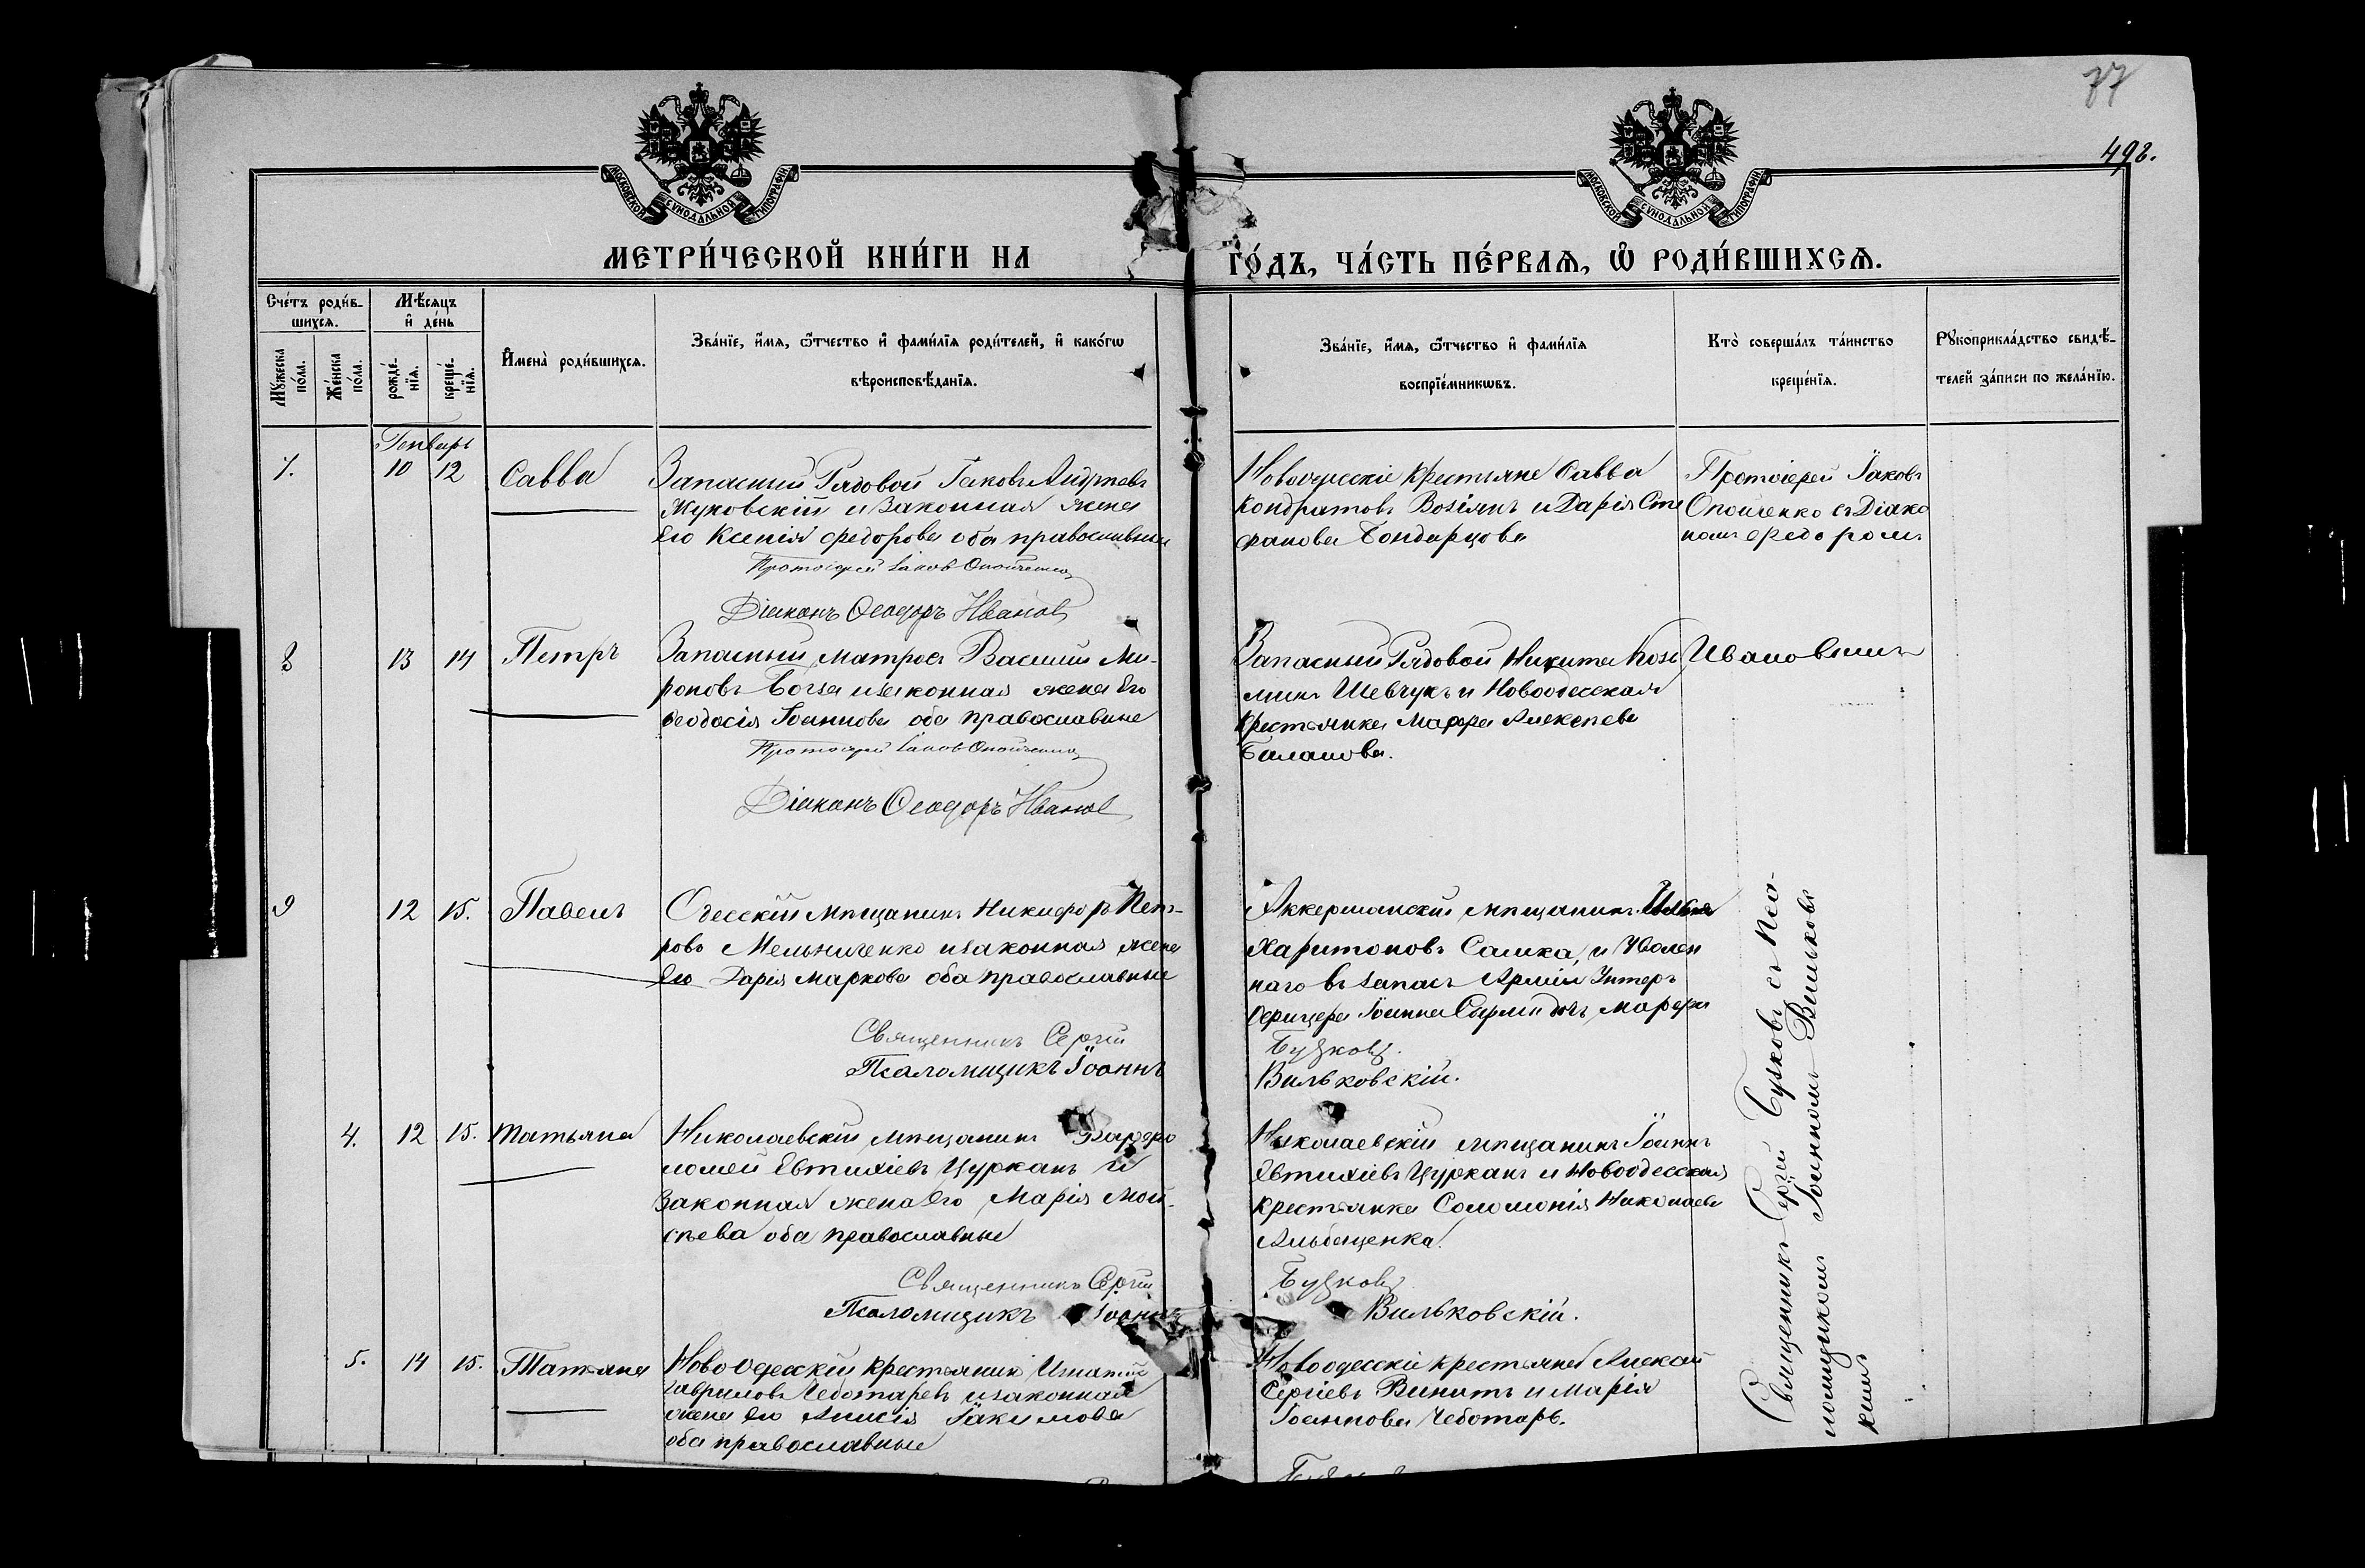 77
498.
МОСКОВСКОЙ СѴНОДАЛЬНОЙ ТИПОГРАФІИ
МОСКОВСКОЙ СѴНОДАЛЬНОЙ ТИПОГРАФІИ
МЕТРИ́ЧЕСКОЙ КНИ́ГИ НА
ГО́ДЪ, ЧА́СТЬ ПЕ́РВАѦ, Ѡ РОДИ́ВШИХСѦ.
Сче́тъ роди́в-
шихсѧ.
Мꙋ́жеска по́ла.
Же́нска по́ла.
Мѣ́сѧцъ
и҆ де́нь
рожде́-
нїѧ.
креще́-
нїѧ.
И҆мена̀ роди́вшихсѧ.
Зва́нїе, и҆́мѧ, ѻ҆́тчество и҆ фами́лїѧ роди́телей, и҆ како́гѡ
вѣроисповѣ́данїѧ.
Зва́нїе, и҆́мѧ, ѻ҆́тчество и҆ фами́лїѧ
воспрїе́мникѡвъ.
Кто̀ соверша́лъ та́инство
креще́нїѧ.
Рꙋкоприкла́дство свидѣ́-
телей за́писи по жела́нїю.
Генварь
7. 10 12 Савва
Запасный Рядовой Іаковъ Андреевъ
Жуковскій и законная жена
его Ксенія Федорова оба православные
Протоіерей Іаковъ Опойченко
Діаконъ Ѳеодоръ Ивановъ
Новоодесскіе крестьяне Савва
Кондратовъ Возіянъ и Дарія Сте
фанова Бондарцова
Протоіерей Іаковъ
Опойченко съ Діако
номъ Федоромъ
8 13 14 Петръ
Запасный матросъ Василій Ми-
роновъ Богза и законная жена Его
Ѳеодосія Іоаннова оба православные
Протоіерей Іаковъ Опойченко
Діаконъ Ѳеодоръ Ивановъ
Запасный Рядовой Никита Козь
минъ Шевчукъ и Новоодесская
крестьянка Марѳа Алексеева
Баланова.
Ивановымъ
9 12 15. Павелъ
Одесскій мѣщанинъ Никифоръ Пет-
ровъ Мельниченко и законная жена
Его Дарія Маркова оба православные
Священникъ Сергій
Псаломщикъ Іоаннъ
Аккерманскій мѣщанинъ Илья
Харитоновъ Самка, и Уволен
наго въ запасъ Арміи Унтеръ
офицера Іоанна дочь Марфа
Бузковъ.
Вильковскій.
4. 12 15. Татьяна
Николаевскій мѣщанинъ Варфо
ломей Евтихіевъ Цурканъ и
Законная жена Его Марія Мои-
сѣева оба православные
Священникъ Сергій
Псаломщикъ Іоаннъ
Николаевскій мѣщанинъ Іоаннъ
Евтихіевъ Цурканъ и Новоодесская
крестьянка Соломонія Николаева
Альбещенка.
Бузковъ
Вильковскій.
5. 14 15. Татьяна
Новоодесскій крестьянинъ Игнатій
Гавриловъ Чеботаревъ и законная
жена Его Анисія Іакимова
оба православные
Новоодесскіе крестьяне Алексей
Сергіевъ Винитъ и Марія
Іоаннова Чеботарь.
Священникъ Сергій Бузковъ съ Пса-
ломщикомъ Іоанномъ Вильковс
кимъ